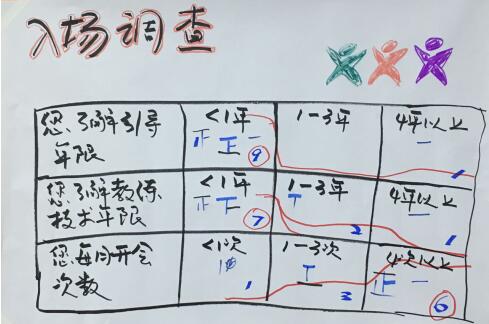 入场调查
您了解引导年限 <1年 1-3年 4年以上
正正一 ⑨ 一 1
您了解教练技术年限 <1年 1-3年 4年以上
正 ⑦ T 2 一 1
您每周开会次数 <1次 1-3次 4次以上
1 3 正一 ⑥